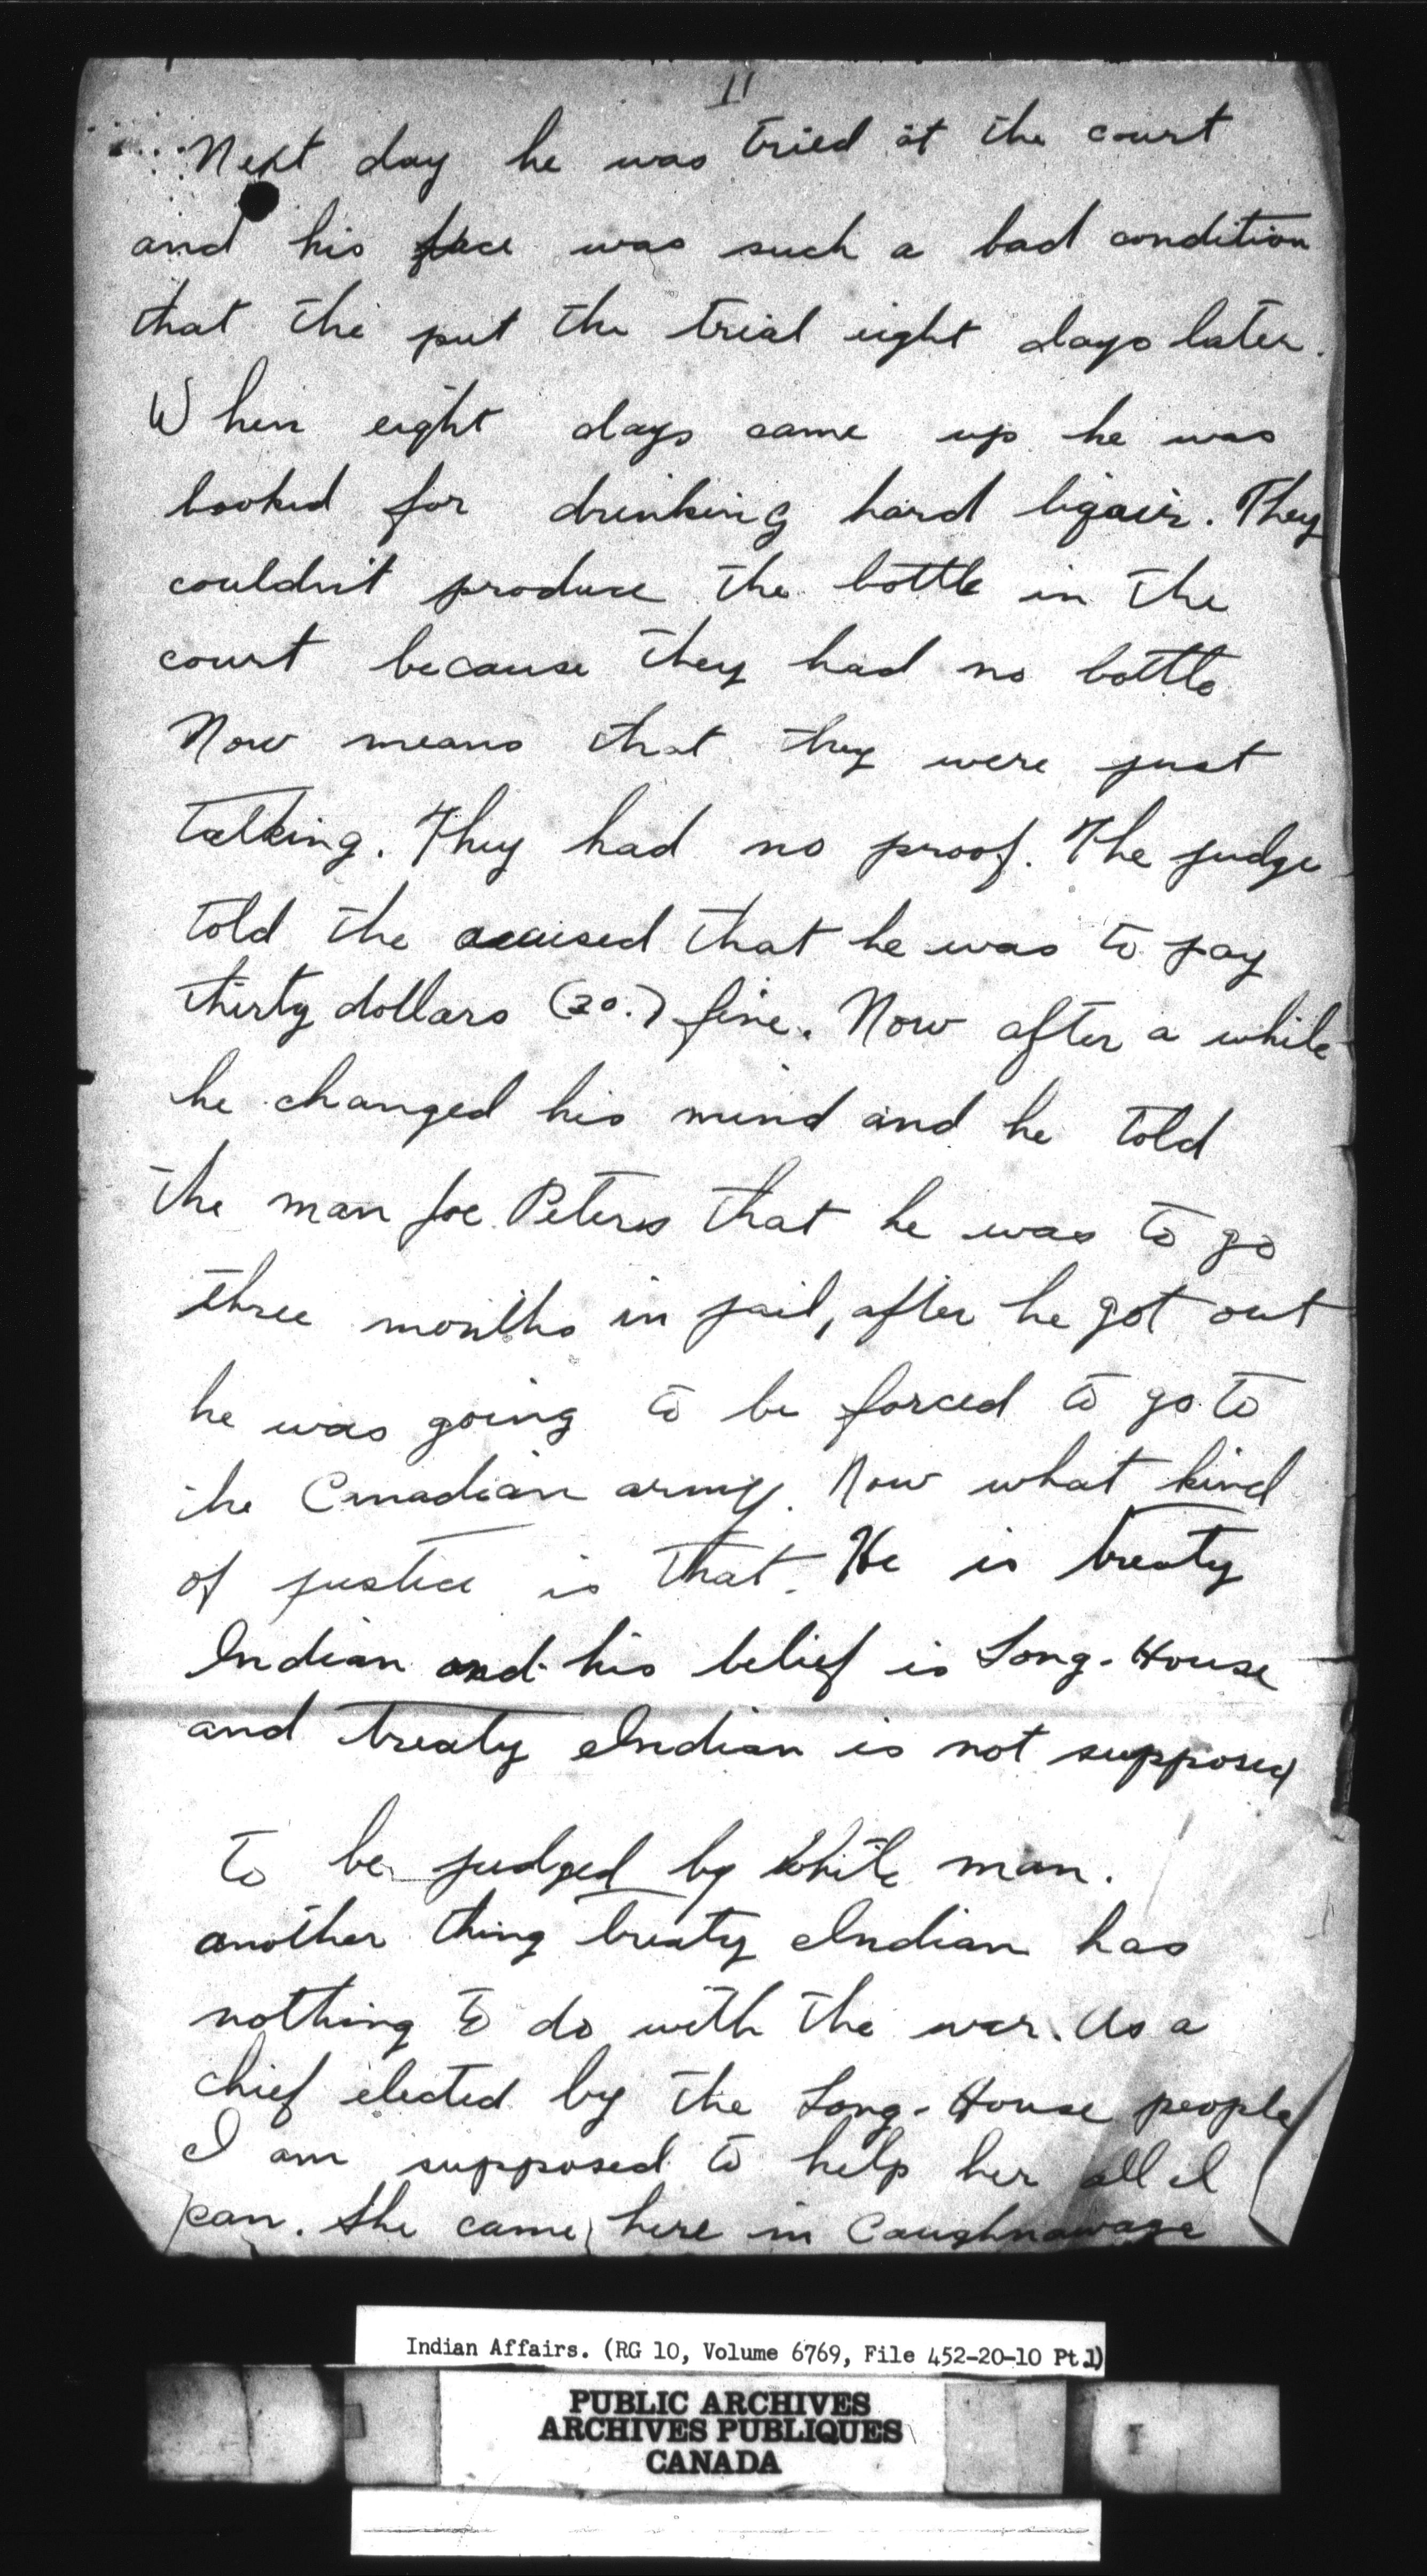 11
Next day he was tried at the court
and his face was such a bad condition
that the put the trial eight days later.
When eight days came up he was
booked for drinking hard liqair. They
couldn't produce the bottle in the
court because they had no bottle
Now means that they were just
talking. They had no proof. The judge
told the accused that he was to pay
thirty dollars (30.) fine. Now after a while
he changed his mind and he told
the man Joe Peters that he was to go
three months in jail, after he got out
he was going to be forced to go to
the Canadian army. Now what kind
of justice is that. He is treaty
Indian and his belief is Long-House
and treaty Indian is not supposed
to be judged by White man.
another thing treaty Indian has
nothing to do with the war. As a
chief elected by the Long-House people
I am supposed to help her all I
can. She came here in Caughnawaga
Indian Affairs. (RG 10, Volume 6769, File 452-20-10 Pt.1)
PUBLIC ARCHIVES
ARCHIVES PUBLIQUES
CANADA